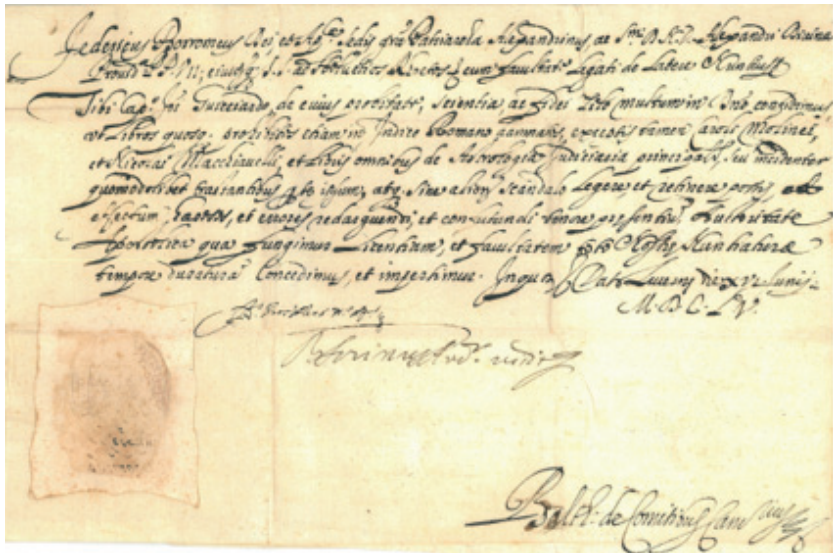 Federicus Borromeus Dei, et Ap.cæ Sedis grã Patriarcha Alexandrinus ac S.mi D. N. D. Alexandri Divina
Provid.a P. P. VII; eiusq; S. S. ad Helvetios Rhetos, eum facultat. Legati de Latere Nuntius
Tibi Cap. de cuius probitate, Scientia, ac fidei Zelo multum in Dno confidimus
ut Libros quosc. prohibitos etiam in Indice Romano damnatis, exceptis tamen Caroli Molinei,
et Nicolai Macchiavelli, et Libris omnibus de Astrologia Iudiciaria principalr, seu incidenter
quomodolibet tractantibus sine Scandalo legere et retinere possis, ad
effectum, et errores redarguendi, et confutandi tenore presentium Authoritate
Apostolica qua fungimur Licentiam, et facultatem Nostræ Nuntiaturæ
tempore duraturã Concedimus, et impertimur. In quor. Dat. Lucernæ die Iunij
M. D. C. L V.
Balth. de Comitibus Canc.ius